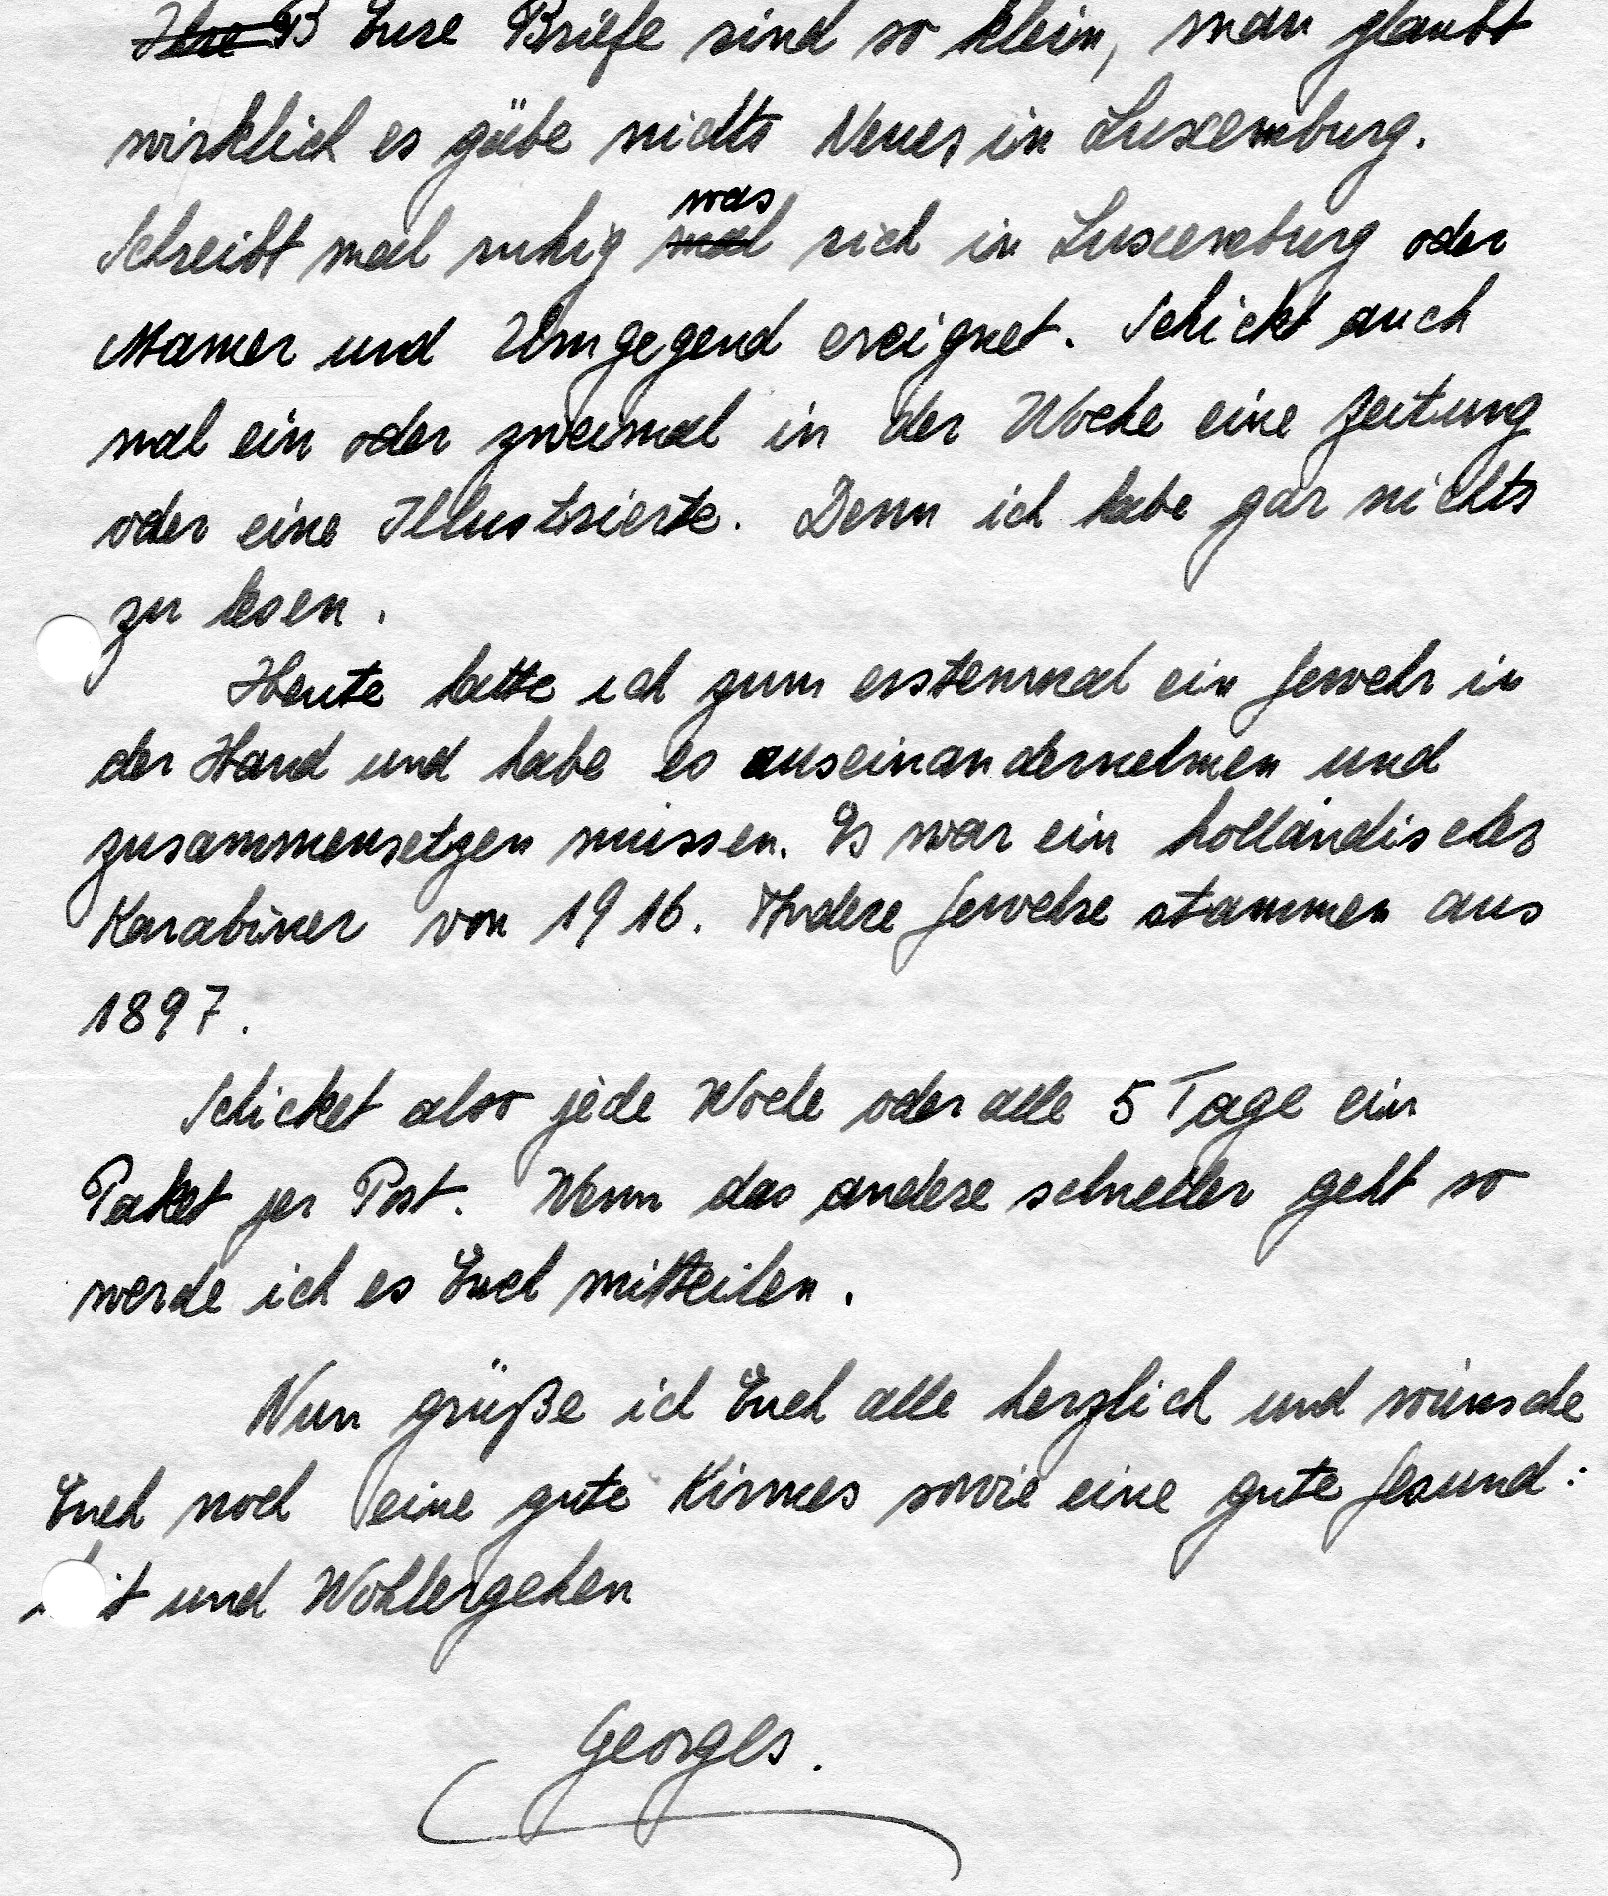 Ihre B Eure Briefe sind so klein, man glaubt
wirklich es gäbe nichts Neues in Luxemburg.
Schreibt mal ruhig mal was sich in Luxemburg oder
Mamer und Umgegend ereignet. Schickt auch
mal ein oder zweimal in der Woche eine Zeitung
oder eine Illustrierte. Denn ich habe gar nichts
zu lesen.
Heute hatte ich zum erstenmal ein Gewehr in
der Hand und habe es auseinandernehmen und
zusammensetzen müssen. Es war ein holländischer
Karabiner von 1916. Andere Gewehre stammen aus
1897.
Schicket also jede Woche oder alle 5 Tage ein
Paket per Post. Wenn das andere schneller geht so
werde ich es Euch mitteilen.
Nun grüße ich Euch alle herzlich und wünsche
Euch noch eine gute Kirmes sowie eine gute Gesund:
heit und Wohlergehen
Georges.